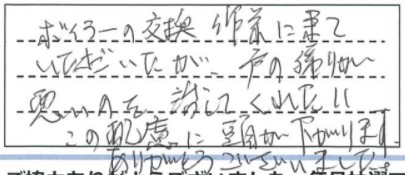 ボイラーの交換作業に来て
いただいたが、戸の締りが
悪いのを治してくれた!!
この配慮に頭が下がります。
ありがとうございました。